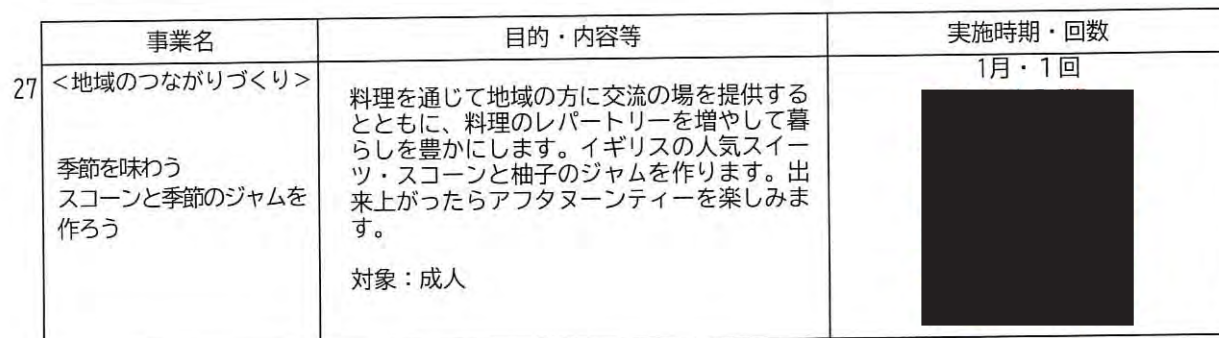 事業名
目的・内容等
実施時期・回数
27
<地域のつながりづくり>
季節を味わう
スコーンと季節のジャムを
作ろう
料理を通じて地域の方に交流の場を提供する
とともに、料理のレパートリーを増やして暮
らしを豊かにします。イギリスの人気スイー
ツ・スコーンと柚子のジャムを作ります。出
来上がったらアフタヌーンティーを楽しみま
す。
対象：成人
1月・1回